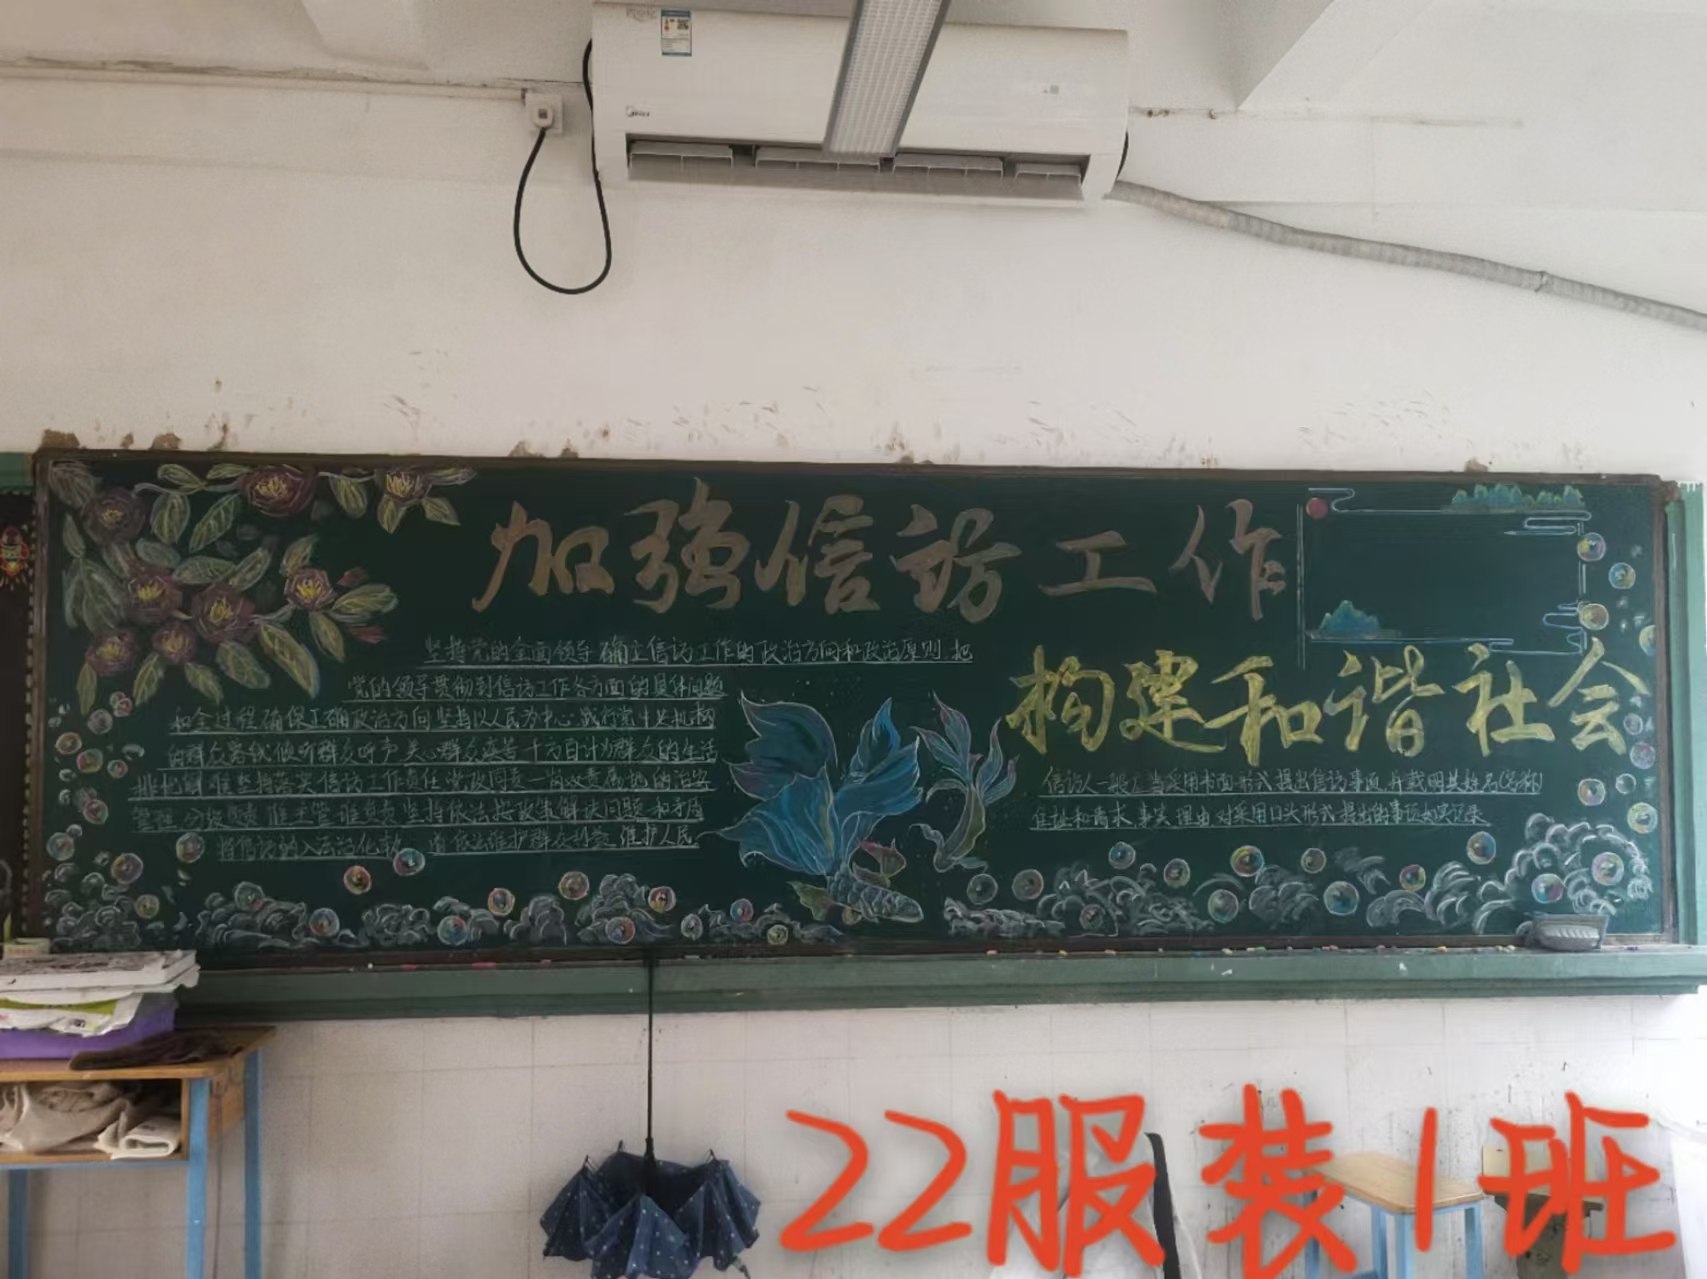 加强信访工作
构建和谐社会
坚持党的全面领导 确立信访工作的政治方向和政治原则 把
党的领导贯彻到信访工作各方面的具体问题
和全过程 确保正确政治方向 坚持以人民为中心 践行党
的群众路线 倾听群众呼声 关心群众疾苦 千方百计为群众的生活
排忧解难 坚持落实信访工作责任 党政同责 一岗双责 属地的治安
管理 分级负责 谁主管谁负责 坚持依法按政策解决问题 和矛盾
将信访纳入法治化轨道 维护群众 维护人民
信访人一般应当采用书面形式提出信访事项 并载明其姓名(名称)
住址和需求 事实 理由 对采用口头形式提出的事项如实记录
22服装1班
Midea